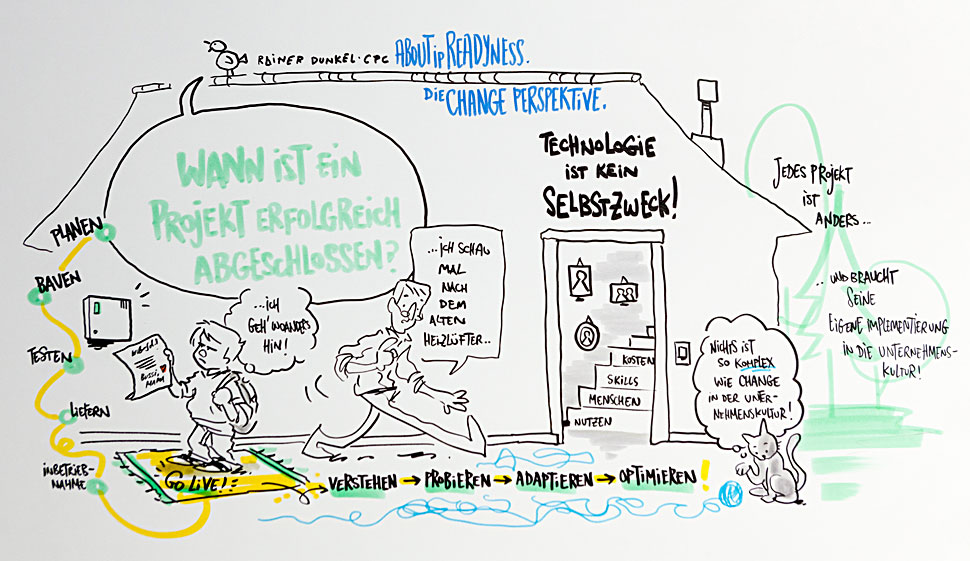 RAINER DUNKEL · CPC ABOUT ip READYNESS.
DIE CHANGE PERSPEKTIVE.
WANN IST EIN
PROJEKT ERFOLGREICH
ABGESCHLOSSEN?
TECHNOLOGIE
IST KEIN
SELBSTZWECK!
JEDES PROJEKT
IST
ANDERS...
... UND BRAUCHT
SEINE
EIGENE IMPLEMENTIERUNG
IN DIE UNTERNEHMENS-
KULTUR!
PLANEN
BAUEN
TESTEN
LIEFERN
INBETRIEB-
NAHME
...ICH
GEH' WOANDERS
HIN!
...ICH SCHAU
MAL
NACH
DEM
ALTEN
HEIZLÜFTER...
KOSTEN
SKILLS
MENSCHEN
NUTZEN
NICHTS IST
SO KOMPLEX
WIE CHANGE
IN DER UNTER-
NEHMENSKULTUR!
GO LIVE!
VERSTEHEN → PROBIEREN → ADAPTIEREN → OPTIMIEREN!